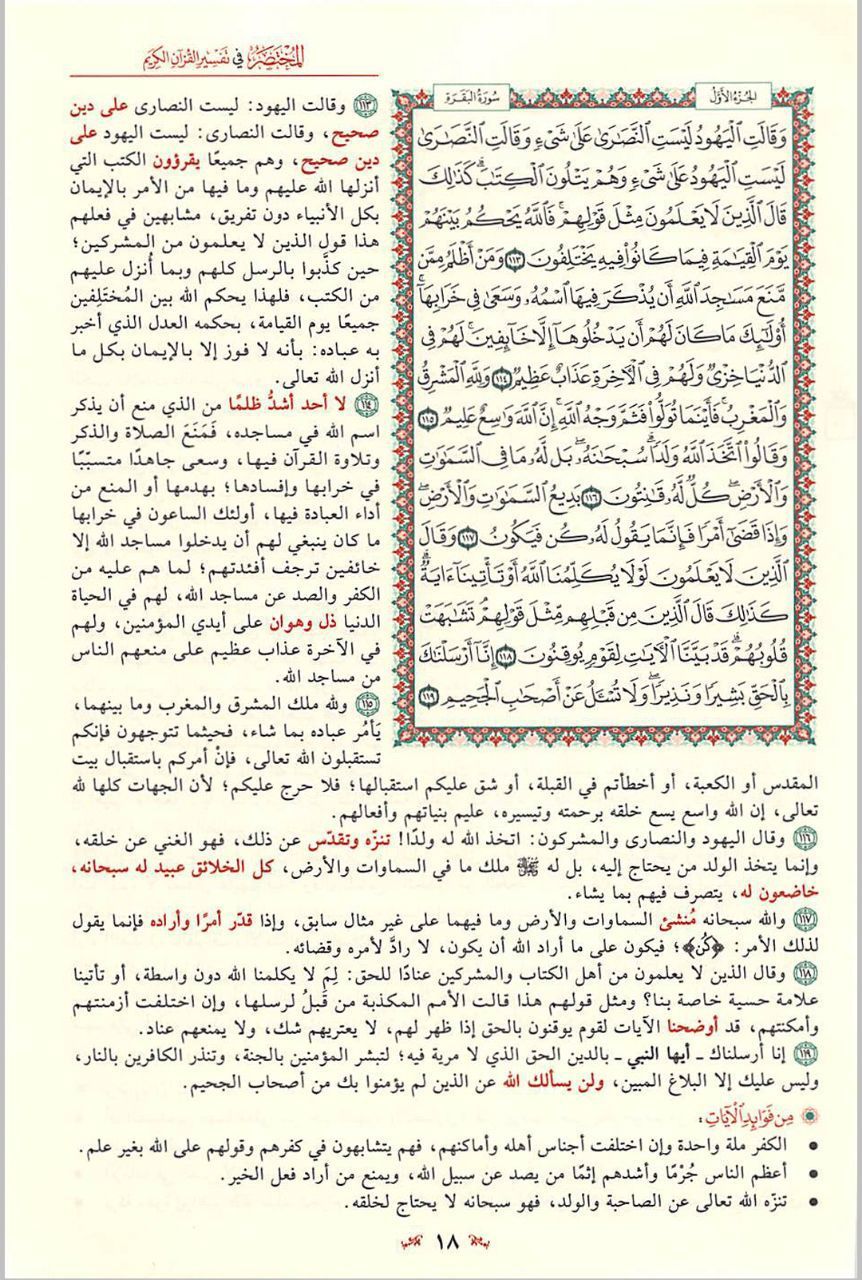 المختصر في تفسير القرآن الكريم
الجزء الأول
سورة البقرة
وَقَالَتِ ٱلْيَهُودُ لَيْسَتِ ٱلنَّصَٰرَىٰ عَلَىٰ شَىْءٍ وَقَالَتِ ٱلنَّصَٰرَىٰ
لَيْسَتِ ٱلْيَهُودُ عَلَىٰ شَىْءٍ وَهُمْ يَتْلُونَ ٱلْكِتَٰبَ ۗ كَذَٰلِكَ
قَالَ ٱلَّذِينَ لَا يَعْلَمُونَ مِثْلَ قَوْلِهِمْ ۚ فَٱللَّهُ يَحْكُمُ بَيْنَهُمْ
يَوْمَ ٱلْقِيَٰمَةِ فِيمَا كَانُوا۟ فِيهِ يَخْتَلِفُونَ ١١٣ وَمَنْ أَظْلَمُ مِمَّن
مَّنَعَ مَسَٰجِدَ ٱللَّهِ أَن يُذْكَرَ فِيهَا ٱسْمُهُۥ وَسَعَىٰ فِى خَرَابِهَآ ۚ
أُو۟لَٰٓئِكَ مَا كَانَ لَهُمْ أَن يَدْخُلُوهَآ إِلَّا خَآئِفِينَ ۚ لَهُمْ فِى
ٱلدُّنْيَا خِزْىٌ وَلَهُمْ فِى ٱلْءَاخِرَةِ عَذَابٌ عَظِيمٌ ١١٤ وَلِلَّهِ ٱلْمَشْرِقُ
وَٱلْمَغْرِبُ ۚ فَأَيْنَمَا تُوَلُّوا۟ فَثَمَّ وَجْهُ ٱللَّهِ ۚ إِنَّ ٱللَّهَ وَٰسِعٌ عَلِيمٌ ١١٥
وَقَالُوا۟ ٱتَّخَذَ ٱللَّهُ وَلَدًا ۗ سُبْحَٰنَهُۥ ۖ بَل لَّهُۥ مَا فِى ٱلسَّمَٰوَٰتِ
وَٱلْأَرْضِ ۖ كُلٌّ لَّهُۥ قَٰنِتُونَ ١١٦ بَدِيعُ ٱلسَّمَٰوَٰتِ وَٱلْأَرْضِ ۖ
وَإِذَا قَضَىٰٓ أَمْرًا فَإِنَّمَا يَقُولُ لَهُۥ كُن فَيَكُونُ ١١٧ وَقَالَ
ٱلَّذِينَ لَا يَعْلَمُونَ لَوْلَا يُكَلِّمُنَا ٱللَّهُ أَوْ تَأْتِينَآ ءَايَةٌ ۗ
كَذَٰلِكَ قَالَ ٱلَّذِينَ مِن قَبْلِهِم مِّثْلَ قَوْلِهِمْ ۘ تَشَٰبَهَتْ
قُلُوبُهُمْ ۗ قَدْ بَيَّنَّا ٱلْءَايَٰتِ لِقَوْمٍ يُوقِنُونَ ١١٨ إِنَّآ أَرْسَلْنَٰكَ
بِٱلْحَقِّ بَشِيرًا وَنَذِيرًا ۖ وَلَا تُسْـَٔلُ عَنْ أَصْحَٰبِ ٱلْجَحِيمِ ١١٩
١١٣ وقالت اليهود: ليست النصارى على دين
صحيح، وقالت النصارى: ليست اليهود على
دين صحيح، وهم جميعًا يقرؤون الكتب التي
أنزلها الله عليهم وما فيها من الأمر بالإيمان
بكل الأنبياء دون تفريق، مشابهين في فعلهم
هذا قول الذين لا يعلمون من المشركين؛
حين كذَّبوا بالرسل كلهم وبما أُنزل عليهم
من الكتب، فلهذا يحكم الله بين المُختَلِفين
جميعًا يوم القيامة، بحكمه العدل الذي أخبر
به عباده: بأنه لا فوز إلا بالإيمان بكل ما
أنزل الله تعالى.
١١٤ لا أحد أشدُّ ظلمًا من الذي منع أن يذكر
اسم الله في مساجده، فَمَنَعَ الصلاة والذكر
وتلاوة القرآن فيها، وسعى جاهدًا متسبّبًا
في خرابها وإفسادها؛ بهدمها أو المنع من
أداء العبادة فيها، أولئك الساعون في خرابها
ما كان ينبغي لهم أن يدخلوا مساجد الله إلا
خائفين ترجف أفئدتهم؛ لما هم عليه من
الكفر والصد عن مساجد الله، لهم في الحياة
الدنيا ذل وهوان على أيدي المؤمنين، ولهم
في الآخرة عذاب عظيم على منعهم الناس
من مساجد الله.
١١٥ ولله ملك المشرق والمغرب وما بينهما،
يَأمُر عباده بما شاء، فحيثما تتوجهون فإنكم
تستقبلون الله تعالى، فإنْ أمركم باستقبال بيت
المقدس أو الكعبة، أو أخطأتم في القبلة، أو شق عليكم استقبالها؛ فلا حرج عليكم؛ لأن الجهات كلها لله
تعالى، إن الله واسع يسع خلقه برحمته وتيسيره، عليم بنياتهم وأفعالهم.
١١٦ وقال اليهود والنصارى والمشركون: اتخذ الله له ولدًا! تنزّه وتقدّس عن ذلك، فهو الغني عن خلقه،
وإنما يتخذ الولد من يحتاج إليه، بل له ﷻ ملك ما في السماوات والأرض، كل الخلائق عبيد له سبحانه،
خاضعون له، يتصرف فيهم بما يشاء.
١١٧ والله سبحانه مُنشئ السماوات والأرض وما فيهما على غير مثال سابق، وإذا قدّر أمرًا وأراده فإنما يقول
لذلك الأمر: ﴿كُن﴾؛ فيكون على ما أراد الله أن يكون، لا رادَّ لأمره وقضائه.
١١٨ وقال الذين لا يعلمون من أهل الكتاب والمشركين عنادًا للحق: لِمَ لا يكلمنا الله دون واسطة، أو تأتينا
علامة حسية خاصة بنا؟ ومثل قولهم هذا قالت الأمم المكذبة من قَبلُ لرسلها، وإن اختلفت أزمنتهم
وأمكنتهم، قد أوضحنا الآيات لقوم يوقنون بالحق إذا ظهر لهم، لا يعتريهم شك، ولا يمنعهم عناد.
١١٩ إنا أرسلناك ـ أيها النبي ـ بالدين الحق الذي لا مرية فيه؛ لتبشر المؤمنين بالجنة، وتنذر الكافرين بالنار،
وليس عليك إلا البلاغ المبين، ولن يسألك الله عن الذين لم يؤمنوا بك من أصحاب الجحيم.
من فوائد الآيات:
• الكفر ملة واحدة وإن اختلفت أجناس أهله وأماكنهم، فهم يتشابهون في كفرهم وقولهم على الله بغير علم.
• أعظم الناس جُرْمًا وأشدهم إثمًا من يصد عن سبيل الله، ويمنع من أراد فعل الخير.
• تنزّه الله تعالى عن الصاحبة والولد، فهو سبحانه لا يحتاج لخلقه.
١٨